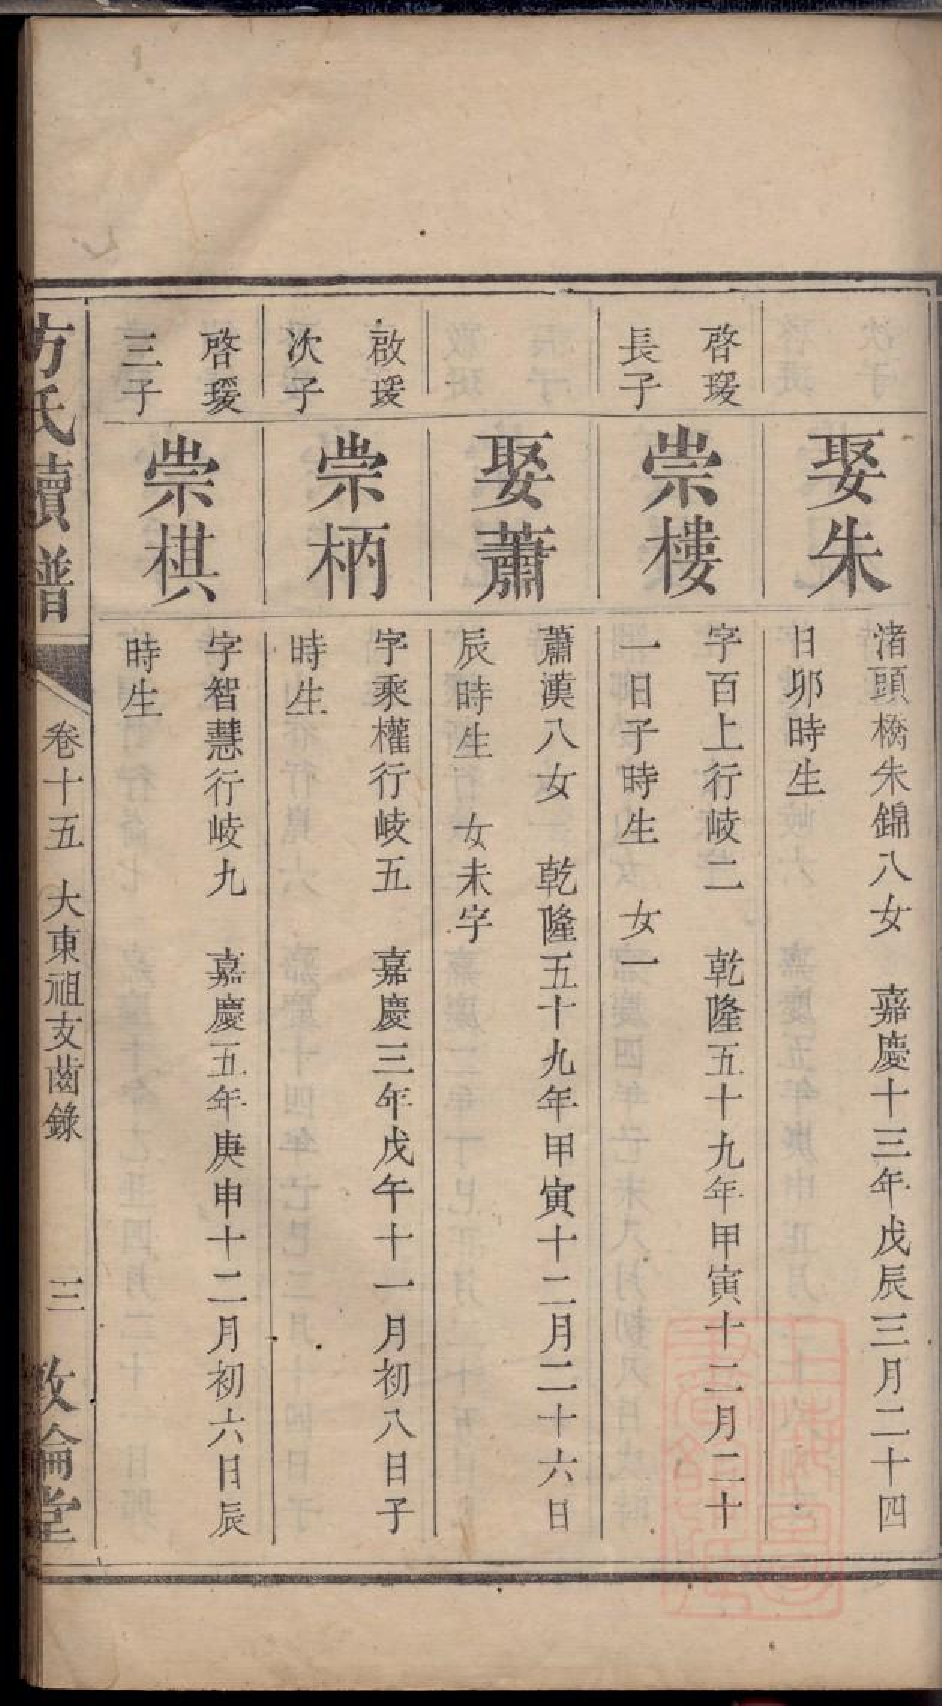 娶朱
渚頭橋朱錦八女　嘉慶十三年戊辰三月二十四
日卯時生
啓瑗
長子
崇樓
字百上行崚二　乾隆五十九年甲寅十二月二十
一日子時生　女一
娶蕭
蕭漢八女　乾隆五十九年甲寅十二月二十六日
辰時生　女未字
啟瑗
次子
崇柄
字乘權行崚五　嘉慶三年戊午十一月初八日子
時生
啓瑗
三子
崇棋
字智慧行崚九　嘉慶五年庚申十二月初六日辰
時生
方氏續譜
卷十五　大東祖支齒錄
三
敦倫堂